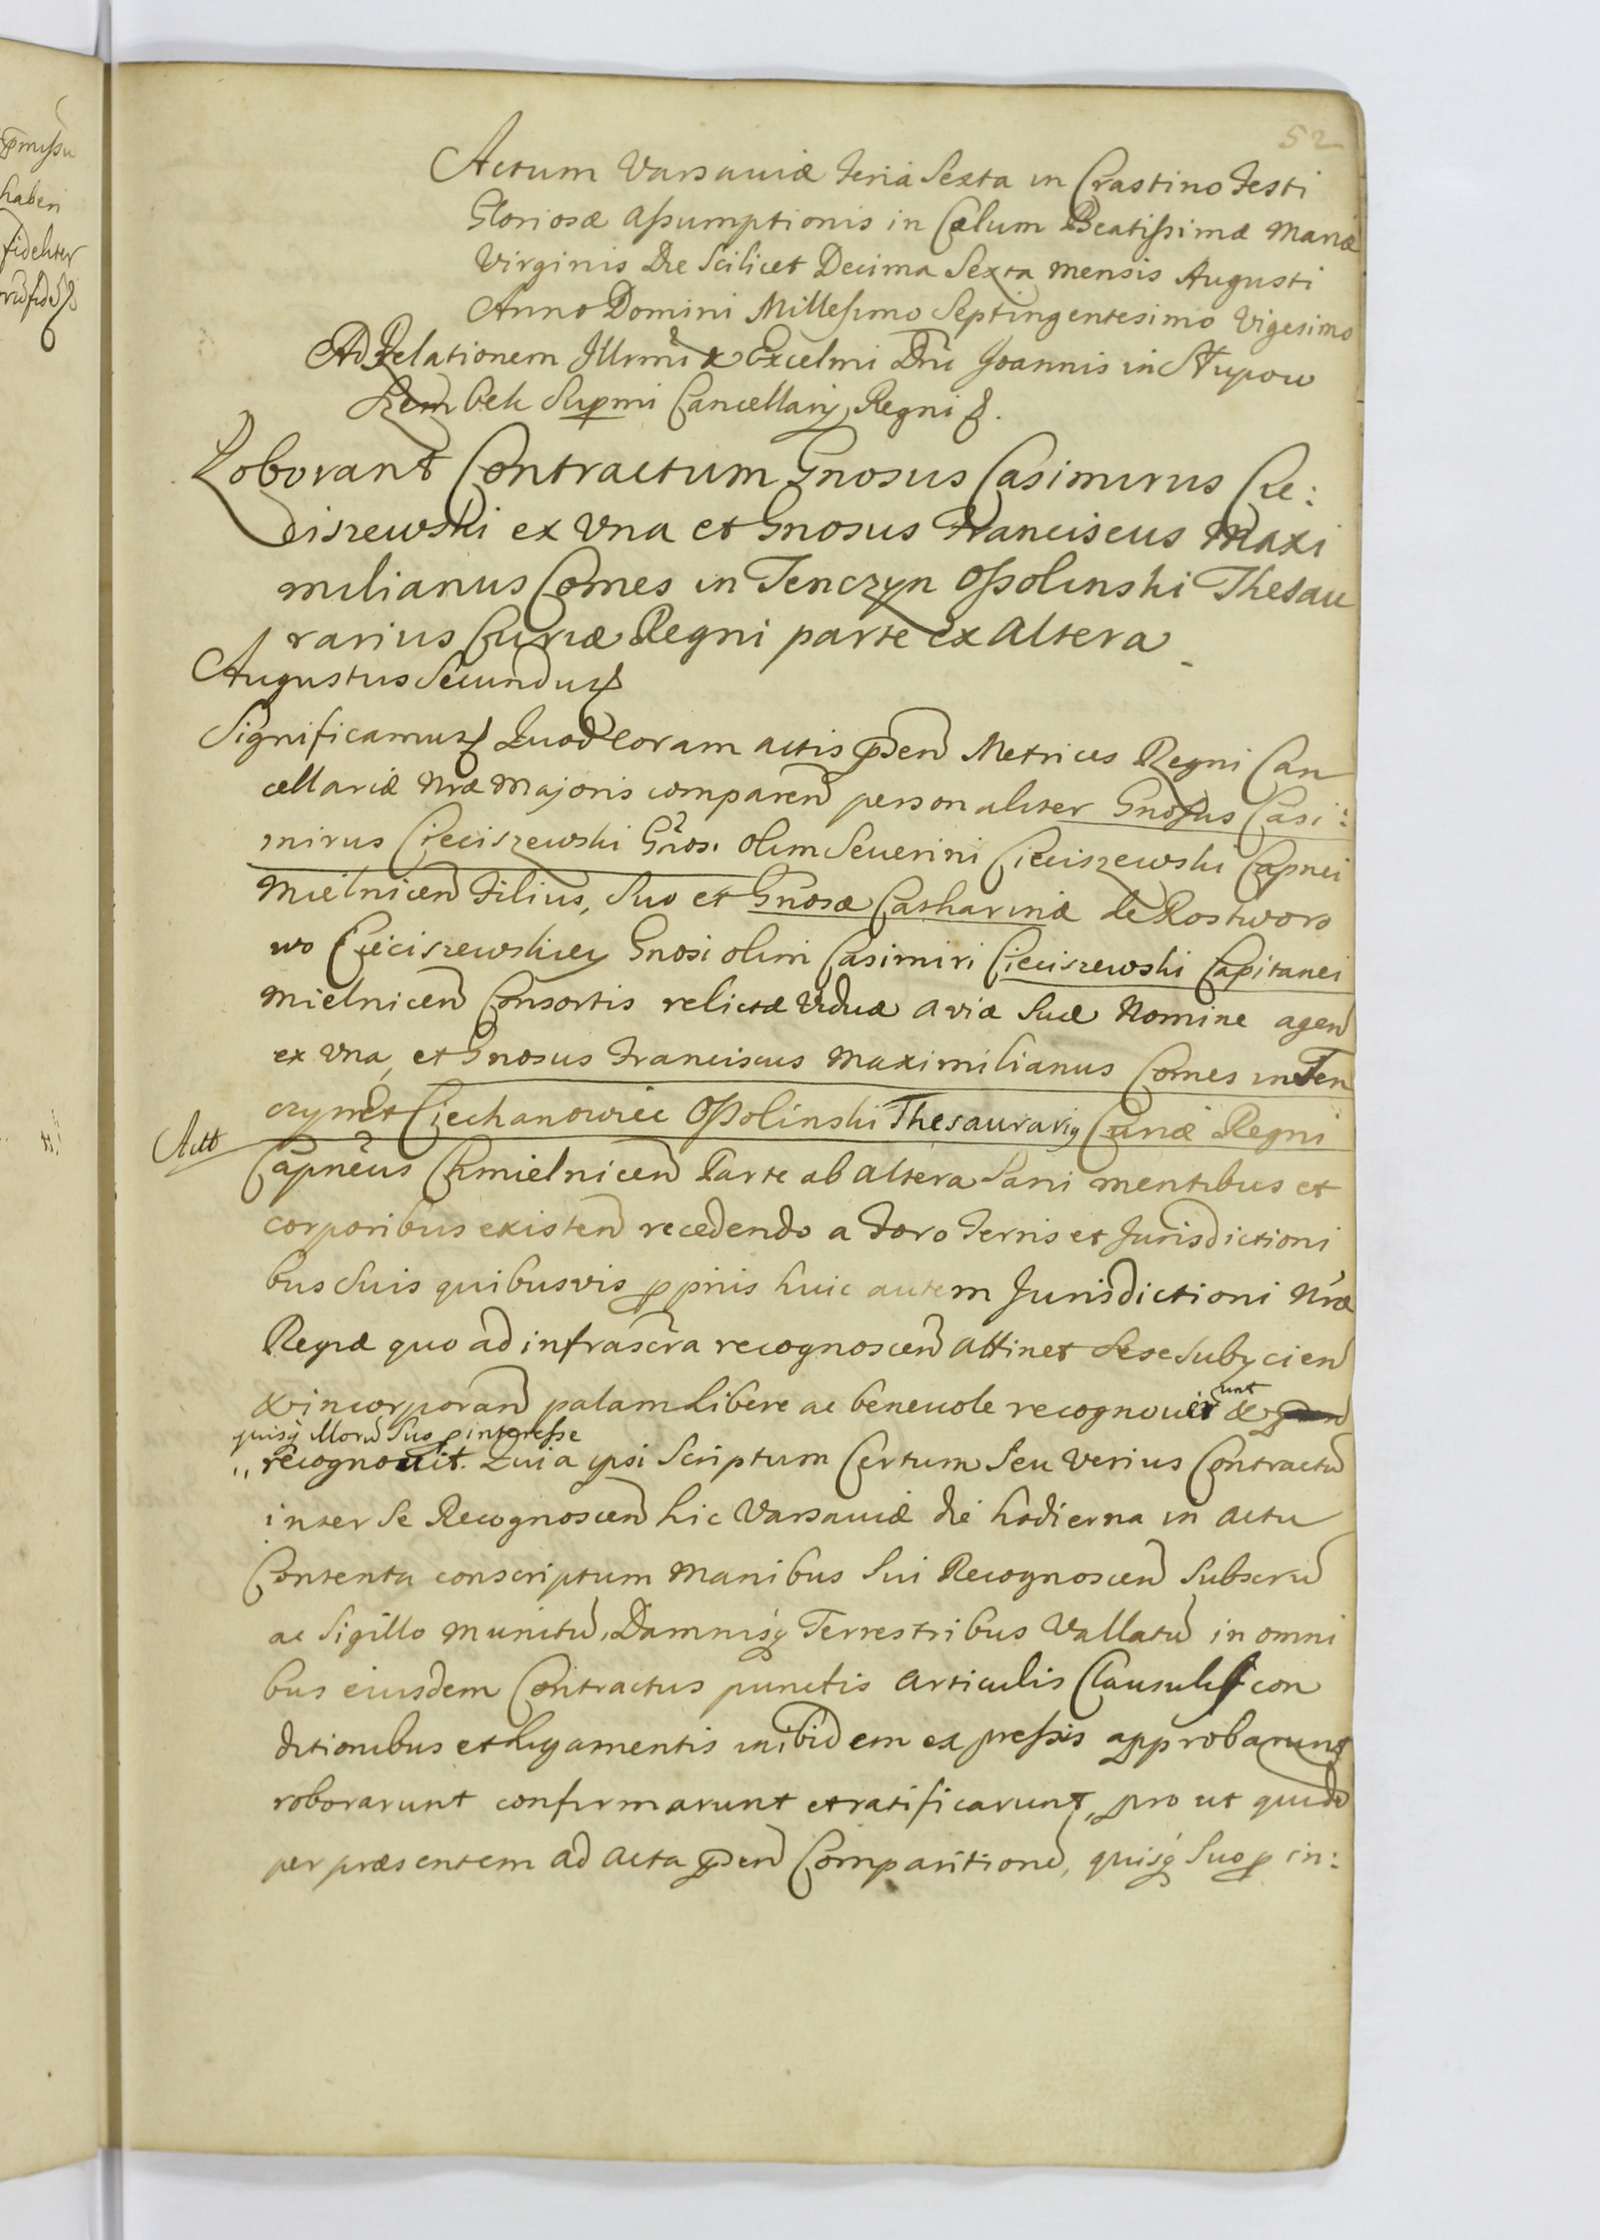 52
Actum Varsaviæ Feria Sexta in Crastino Festi
Gloriosæ Assumptionis in Cælum Beatissimæ Mariæ
Virginis Die Scilicet Decima Sexta Mensis Augusti
Anno Domini Millesimo Septingentesimo Vigesimo
Ad Relationem Illrmi & Excelmi Dni Joannis in Słupow
Szembek Supmi Cancellarij Regni
Roborant Contractum Gnosus Casimirus Cie:
ciszewski ex Vna et Gnosus Franciscus Maxi
milianus Comes in Tenczyn Ossolinski Thesau
rarius Curiæ Regni parte ex Altera
Augustus Secundus
Significamus Quod coram actis pnsen Metrices Regni Can
cellariæ Nræ Majoris comparen personaliter Gnosus Casi:
mirus Cieciszewski Gnosi olim Severini Cieciszewski Capnei
Mielnicen Filius, Suo et Gnosæ Catharinæ de Rostworo
wo Cieciszewskiey Gnosi olim Casimiri Cieciszewski Capitanei
Mielnicen Consortis relictæ Viduæ aviæ Suæ Nomine agen
ex Vna, et Gnosus Franciscus Maximilianus Comes in Ten
czyn et Ciechanowiec Ossolinski Thesaurarig Curiæ Regni
Actt
Capneus Chmielnicen Parte ab altera Sani mentibus et
corporibus existen recedendo a Foro Terris et Jurisdictioni
bus Suis quibusvis ppriis huic autem Jurisdictioni Nræ
Regiæ quo ad infrascra recognoscen attinet Sese Subijcien
& incorporan palam libere ac benevole recognover unt &
quisq illoru Suo p interesse
recognovit. Quia ipsi Scriptum Certum Seu Verius Contractu
inter Se Recognoscen hic Varsaviæ die hodierna in actu
Contenta conscriptum Manibus Sui Recognoscen Subscru
ac Sigillo munitu, Damnisq Terrestribus Vallatu in omni
bus eiusdem Contractus punctis Articulis Clausulis con
ditionibus et ligamentis inibidem expressis approbarunt
roborarunt confirmarunt et ratificarunt, pro ut quide
per præsentem ad acta pnsen Comparitione, quisq Suo p in: